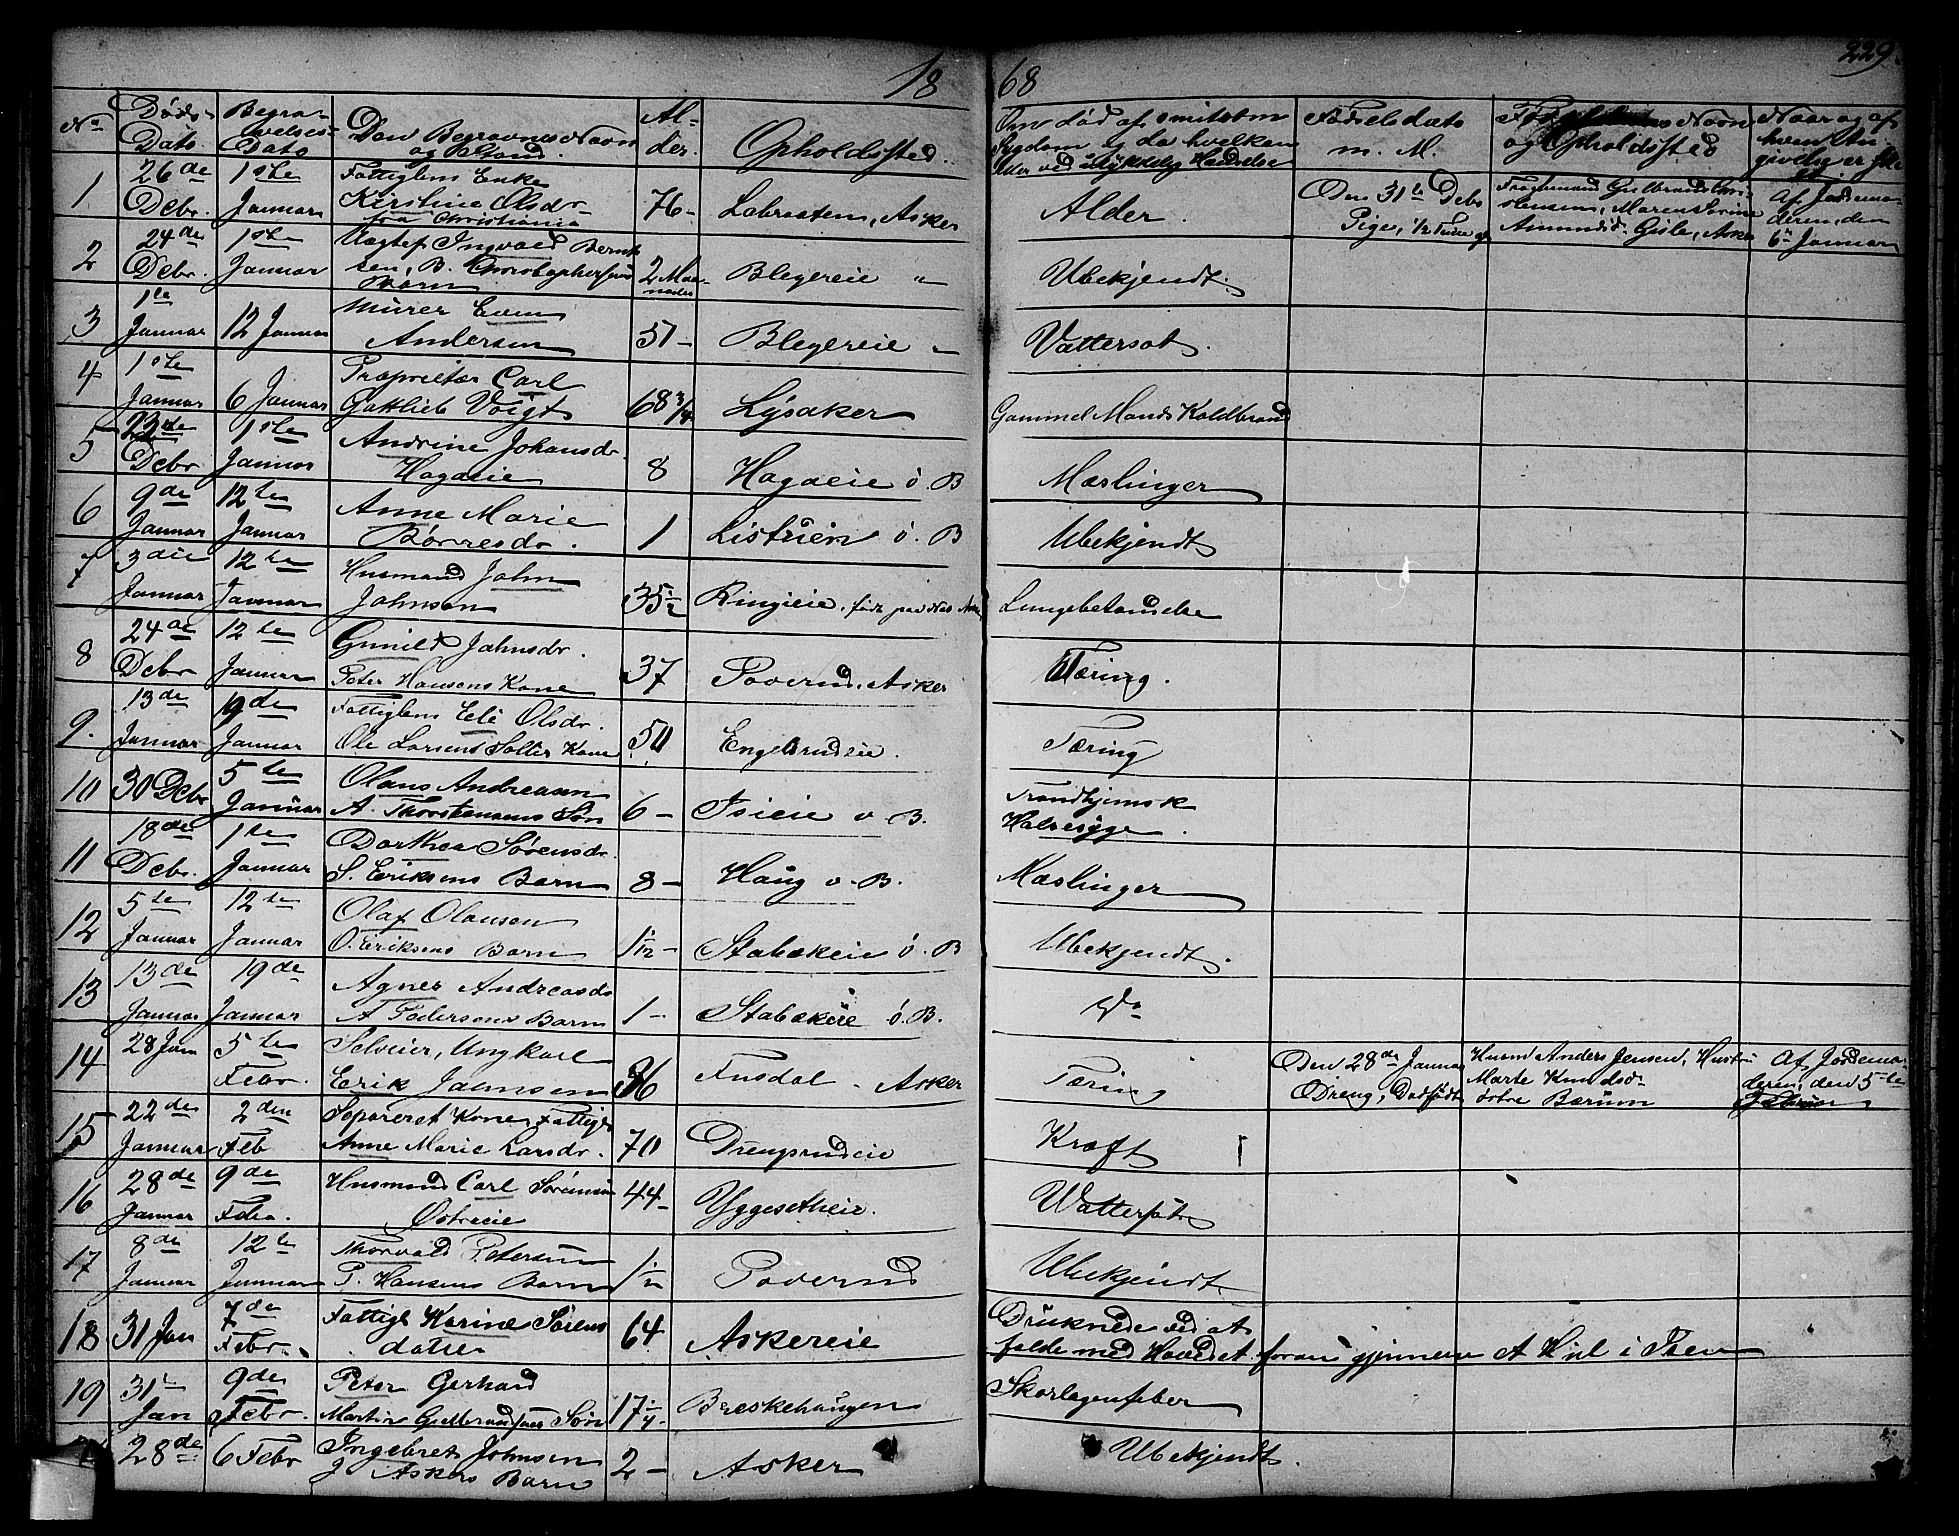 1868
229
No
Døds-
Dato
Begra-
velses-
Dato
Den Begravnes Navn
og Stand.
Al-
der.
Opholdssted.
Om død af smitsom
Sygdom og da hvilken
eller ved ulykkelig Hændelse
Fødselsdato
m. M.
Navn
og Opholdssted
Naar og af
hvem An-
givelig er skeet
1
26de
Debr.
1ste
Januar
Fattiglem Enke
Kirstine Olsdr
fra Christiania
76 -
Labraaten, Asker
Alder.
Den 31te Debr
Pige,
Gulbrand Chri-
stensen, Maren
Amundsd. Gisle, Asker
Af Jordemo-
deren, den
6te Januar
2
24de
Debr.
1ste
Januar
Ingvald Bernt-
sen, B. Christophersens
Barn
2 Maa-
neder
Blegereie "
Ubekjendt.
3
1te
Januar
12 Januar
Murer Even
Andersen
51 -
Blegereie "
Vattersot.
4
1ste
Januar
6 Januar
Proprietær Carl
Gottlieb Voigt
68 3/4
Lysaker
Gammel Mands Koldbrand
5
23de
Debr
1ste
Januar
Andrine Johansdr.
Hagaeie
8
Hagaeie ö. B
Mæslinger
6
9de
Januar
12te
Januar
Anne Marie
Børresdr.
1
Listuen ö. B
Ubekjendt
7
3die
Januar
12te
Januar
Husmand John
Johnsen
35 1/2
Ringieie, født paa Næs
Lungebetændelse
8
24de
Debr
12te
Januar
Gunild Johnsdr.
Peter Hansens Kone
37
Poverud, Asker
Tæring.
9.
13de
Januar
19de
Januar
Fattiglem Eli Olsdr.
Ole Larsens Kone
50
Engebrudeie.
Tæring
10
30 Debr
5te
Januar
Olaus Andreasen
A. Thorstensens Søn
6 -
Isieie v B.
Trondhjemsk
Halssyge.
11
18de
Debr.
1te
Januar
Dorthea Sörensdr.
S. Eriksens Barn
8 -
Haug v. B.
Mæslinger
12
5te
Januar
12te
Januar
Olaf Olausen
O. Eriksens Barn
1/12 -
Stabækeie ö. B
Ubekjendt.
13
13de
Januar
19de
Januar
Agnes Andreasdr
A Pedersens Barn
1 -
Stabækeie ö. B.
Do
14
28 Jan
5te
Febr.
Selveier, Ungkarl
Erik Johnsen
36
Fusdal - Asker
Tæring
Den 28de Januar
Dreng, Dødfødt
Husm Anders Jensen, Hustru
Marte Knudsd.
östre Bærum
Af Jordemo-
deren, den 5te
Februar
15
22de
Januar
2den
Feb
Separeret Kone Fattigl
Anne Marie Larsdr.
70
Drengsrudeie
Kræft
16
28de
Januar
9de
Febr.
Husmand Carl Sörensen
Östreeie
44 -
Yggesetheie.
Wattersot
17
8de
Januar
12te
Januar
Thorvald Petersen
P. Hansens Barn
1/2
Poverud
Ubekjendt
18
31 Jan
7de
Febr.
Fattigl Karine Sörens
datter
64
Askereie
Druknede ved at
falde med Hovedet foran gjennem et Hul i Isen
19
31te
Jan
9de
Febr.
Peter Gerhard
Martin Gulbrandsens Søn
17 1/4 -
Breskehaugen
Skarlagensfeber
28de
6 Febr
Ingebret Johnsen
J Askers Barn
2 -
Asker
Ubekjendt.